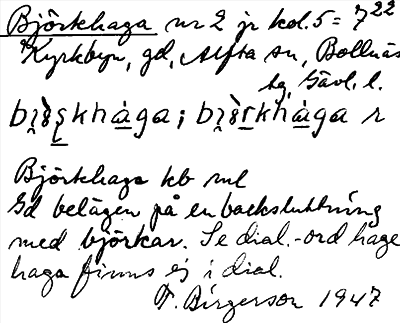 Björkhaga nr 2 jr kol. 5 = 7²²
Kyrkbyn, gd, Alfta sn, Bollnäs
tg, Gävl. l.
Björkhaga kb ml
Gd belägen på en backsluttning
med björkar. Se dial.-ord hage
haga finns ej i dial.
F. Birgerson 1947